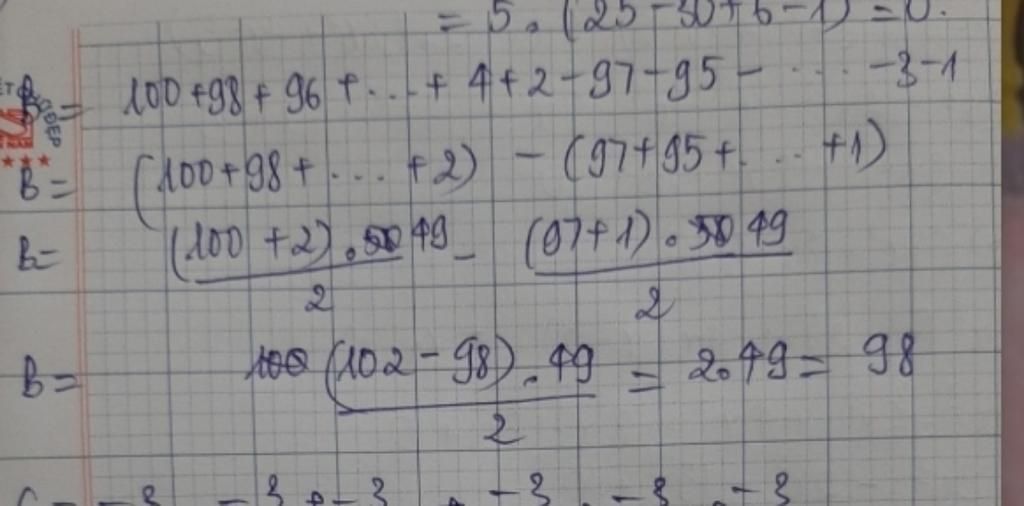 = 5.(25-30+6-1) = 0.
B = 100+98+96+...+4+2-97-95-....-3-1
B = (100+98+....+2) - (97+95+....+1)
B = (100+2).49/2 - (97+1).49/2
B = (102-98).49/2 = 2.49 = 98